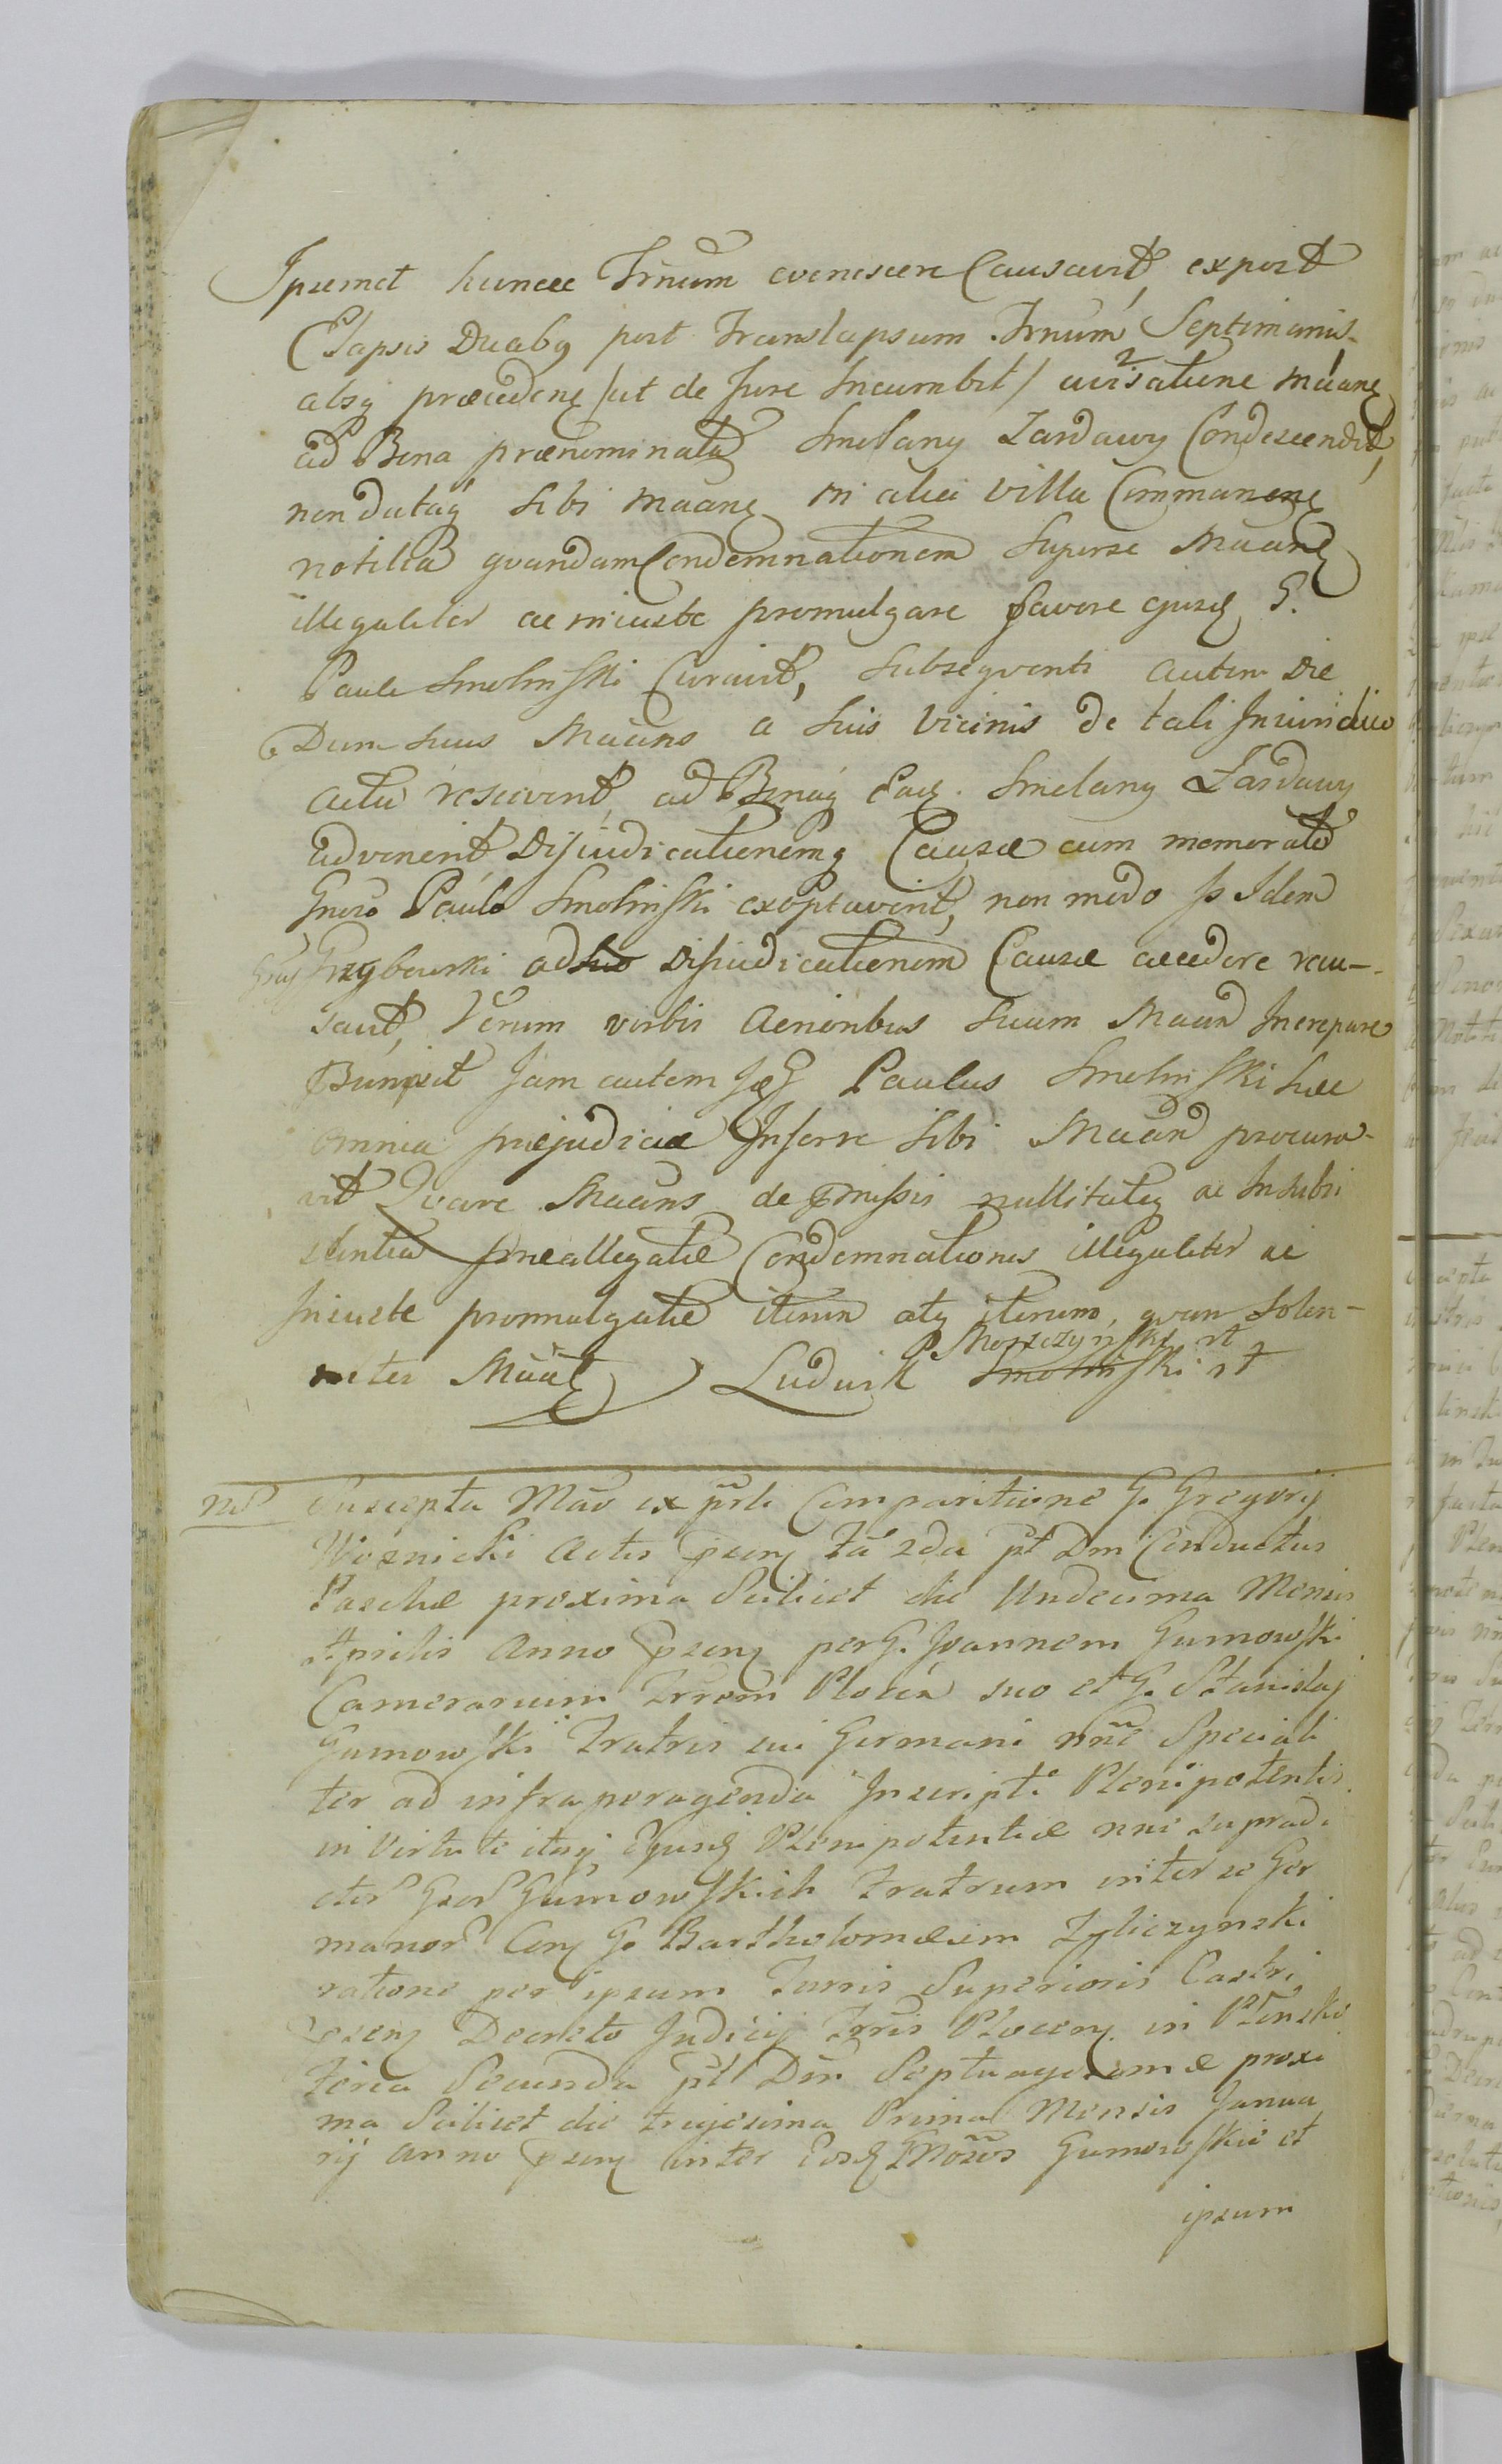 Ipsemet huncce Trnum evenescere Causavit, expost
Elapsis Duabq post Translapsum Trnum Septimanis
absq praecedene /ut de Jure Incumbit/ avisatione Maane
ad Bona praenominata Smolany Zardawy Condescendit,
non datáq sibi Maane in alia Villa Commanene
notitia quandam Condemnationem Superse Maane
illegaliter ac iniuste promulgare favore ejusd G.
Pauli Smolinski Curavit, Subsequenti autem Die
Dum suus Maans a suis Vicinis de tali Iniuridico
actu resciverit, ad Bonaq Ead. Smolany Zardawy
advenerit Disjudicationemq Causae cum memorato
Gnero Paulo Smolinski exoptaverit, non modo Idem
Grzybowski ad Disjudicationem Causae accedere recu-
savit, Verum verbis acrioribus Suum Maan Increpare
Jam autem Paulus Smolinski haec
omnia prejudicia Inferre sibi Maan procura-
vit Quare Maans de pmissis nullitateq ac Insubsi
stentia praeallegatae Condemnationis illegaliter ac
Iniuste promulgatae iterum atq iterum, quam Solen-
niter Maat Ludwik Smolinski rt
Moszczynski rt
Suscepta Mao ex prti Comparitione G. Gregorij
Woznicki Actis psen fa 2da pt Dm Conductus
Paschae proxima Scilicet die Undecima Mensis
Aprilis Anno psen per G. Joannem Gumowski
Camerarium Trrem Plocen suo et G. Stanislaj
Gumowski Fratris sui Germani nne Speciali
ter ad infra peragenda Inscripti Plenipotentis
in Virtute itaq Ejusd Plenipotentiae nne supradi
ctor Gsor Gumowskich Fratrum inter se Ger
manor Con G. Bartholomaeum Zyliczynski
ratione per ipsum Turris Superioris Castri
psen Decreto Judicij Trris Plocen in Plonsko
feria Secunda pt Dm Septuagesimae proxi
ma Scilicet die trigesima Prima Mensis Janua
rij anno psen inter Eosd Gnosos Gumowskie et
ipsum